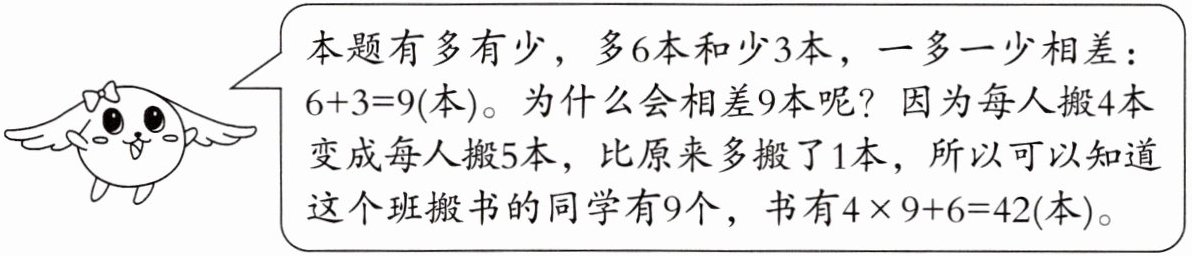 本题有多有少，多6本和少3本，一多一少相差：
6+3=9(本)。为什么会相差9本呢？因为每人搬4本
变成每人搬5本，比原来多搬了1本，所以可以知道
这个班搬书的同学有9个，书有4×9+6=42(本)。